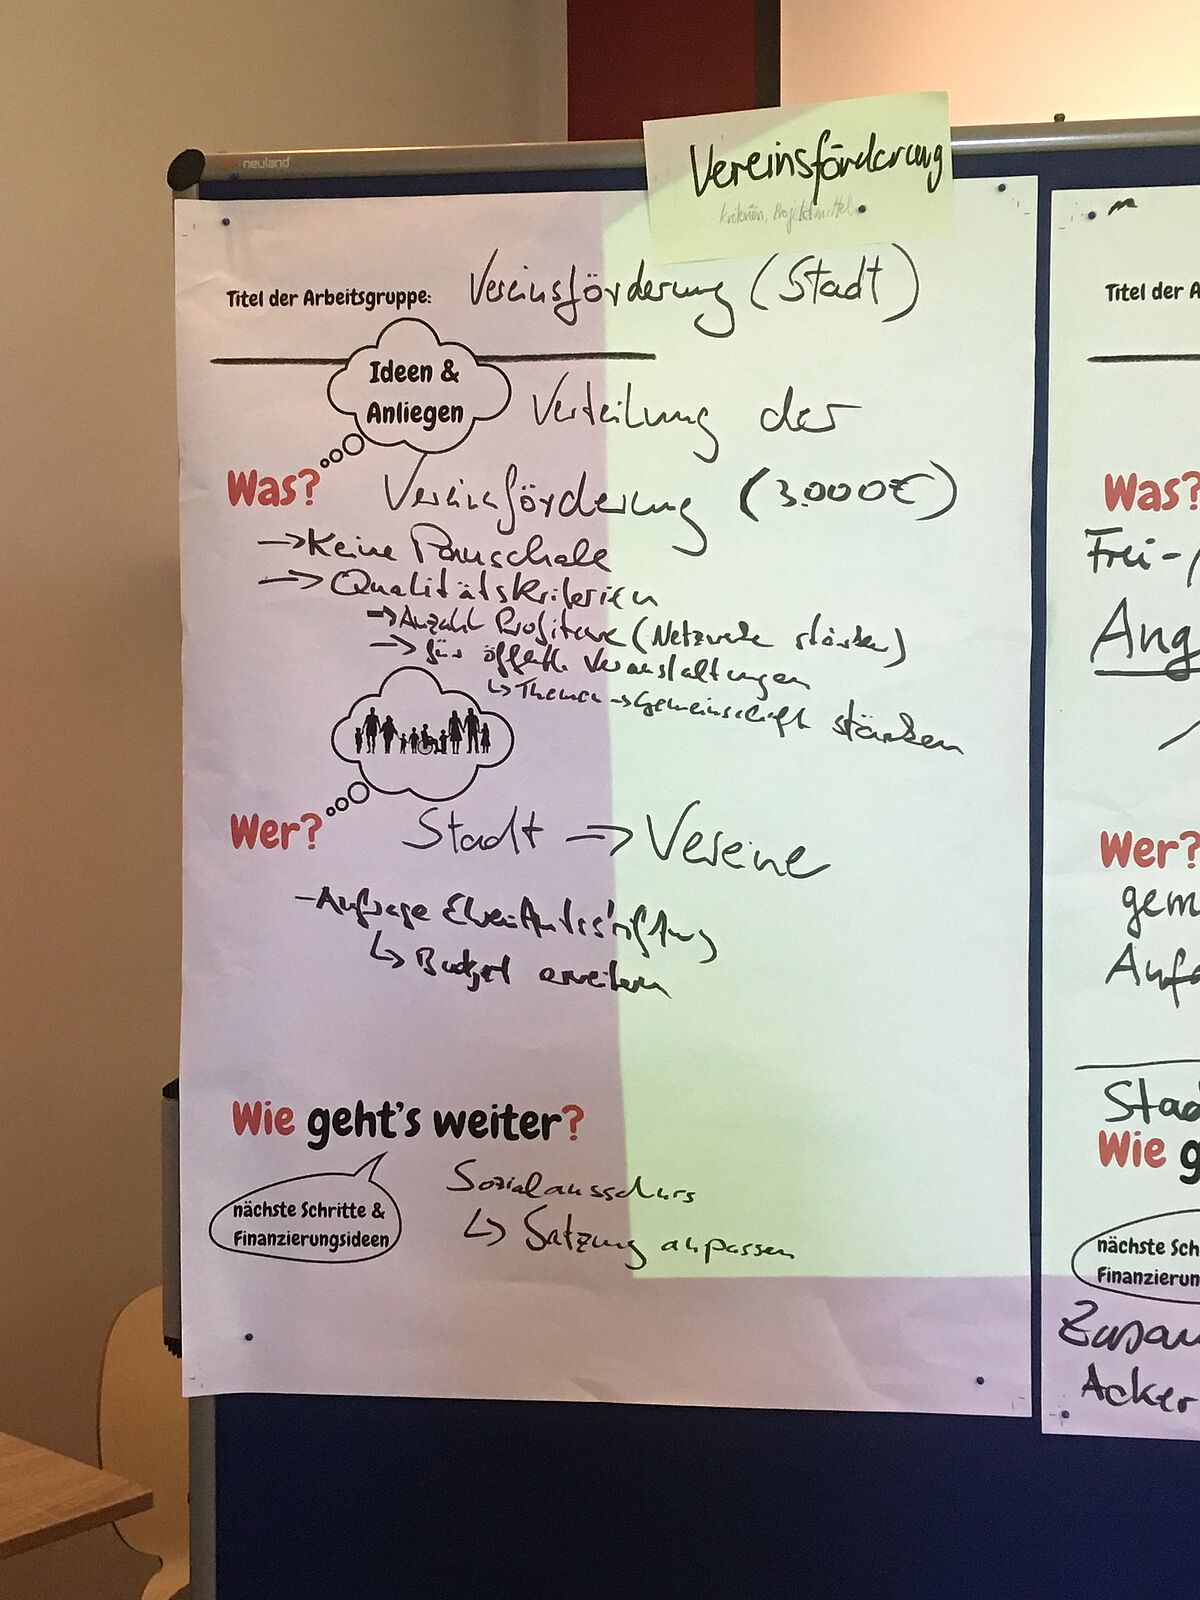 neuland
Vereinsförderung
Kriterien, Projektmittel
Titel der Arbeitsgruppe: Vereinsförderung (Stadt)
Ideen &
Anliegen
Verteilung der
Was? Vereinsförderung (3.000€)
→ Keine Pauschale
→ Qualitätskriterien
→ Anzahl Profiteure (Netzwerke stärken)
→ für öffentl. Veranstaltungen
↳ Themen → Gemeinschaft stärken
Wer? Stadt → Vereine
- Anfrage
↳ Budget erweitern
Wie geht's weiter?
nächste Schritte &
Finanzierungsideen
Sozialausschuss
↳ Satzung anpassen
Titel der A
Was?
Frei-
Ang
Wer?
gem
Aufa
Stad
Wie g
nächste Sch
Finanzierun
Zusam
Acker